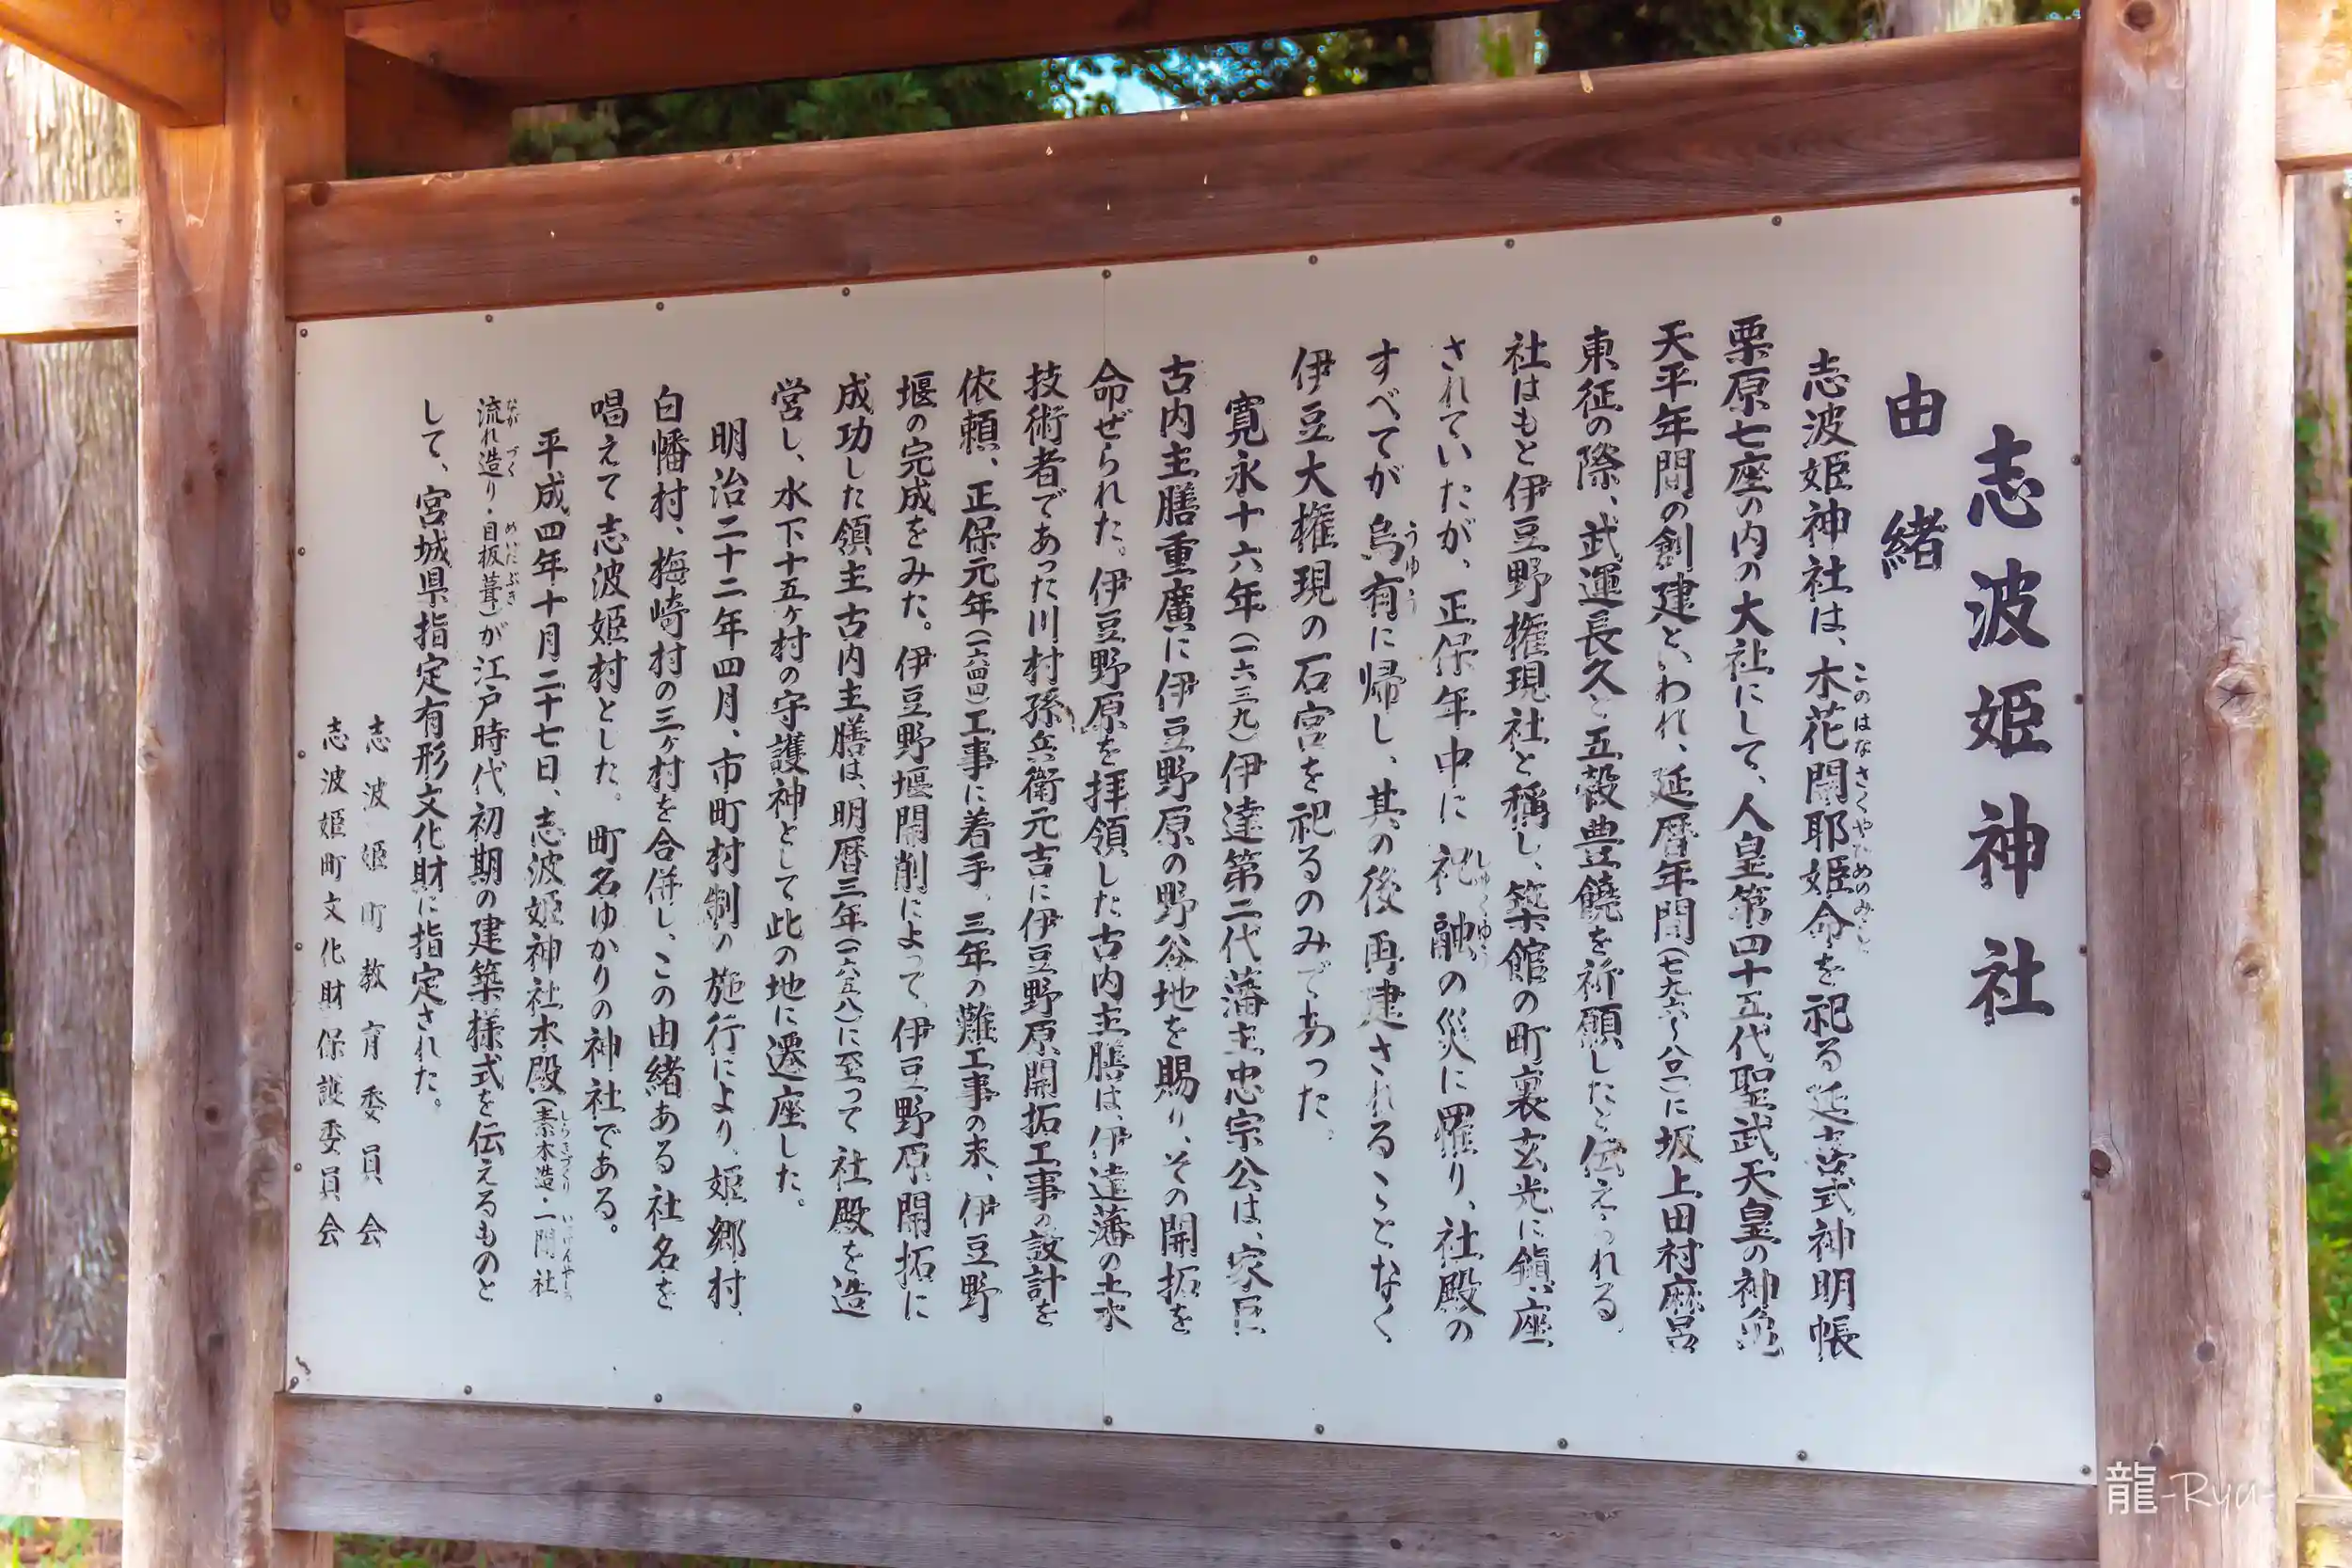 志波姫神社
由緒
志波姫神社は、木花開耶姫命を祀る延喜式神明帳
このはなさくやひめのみこと
栗原七座の内の大社にして、人皇第四十五代聖武天皇の神亀
天平年間の創建といわれ、延暦年間(七九六〜八〇一)に坂上田村麻呂
東征の際、武運長久と五穀豊饒を祈願したと伝えられる。
社はもと伊豆野権現社と稱し、築館の町裏玄光に鎮座
されていたが、正保年中に祀融の災に罹り、社殿の
しゅくゆう
すべてが烏有に帰し、其の後再建されることなく
うゆう
伊豆大権現の石宮を祀るのみであった。
寛永十六年(一六三九)伊達第二代藩主忠宗公は、家臣
古内主膳重廣に伊豆野原の野谷地を賜り、その開拓を
命ぜられた。伊豆野原を拝領した古内主膳は、伊達藩の土木
技術者であった川村孫兵衛元吉に伊豆野原開拓工事の設計を
依頼、正保元年(一六四四)工事に着手、三年の難工事の末、伊豆野
堰の完成をみた。伊豆野堰開削によって、伊豆野原開拓に
成功した領主古内主膳は、明暦三年(一六五八)に至って社殿を造
営し、水下十五ヶ村の守護神として此の地に遷座した。
明治二十二年四月、市町村制の施行により、姫郷村、
白幡村、梅崎村の三ヶ村を合併し、この由緒ある社名を
唱えて志波姫村とした。町名ゆかりの神社である。
平成四年十月二十七日、志波姫神社本殿(素木造・一間社
しらきづくり いっけんやしろ
流れ造り・目板葺)が江戸時代初期の建築様式を伝えるものと
なが づく めいたぶき
して、宮城県指定有形文化財に指定された。
志波姫町教育委員会
志波姫町文化財保護委員会
龍-Ryu-